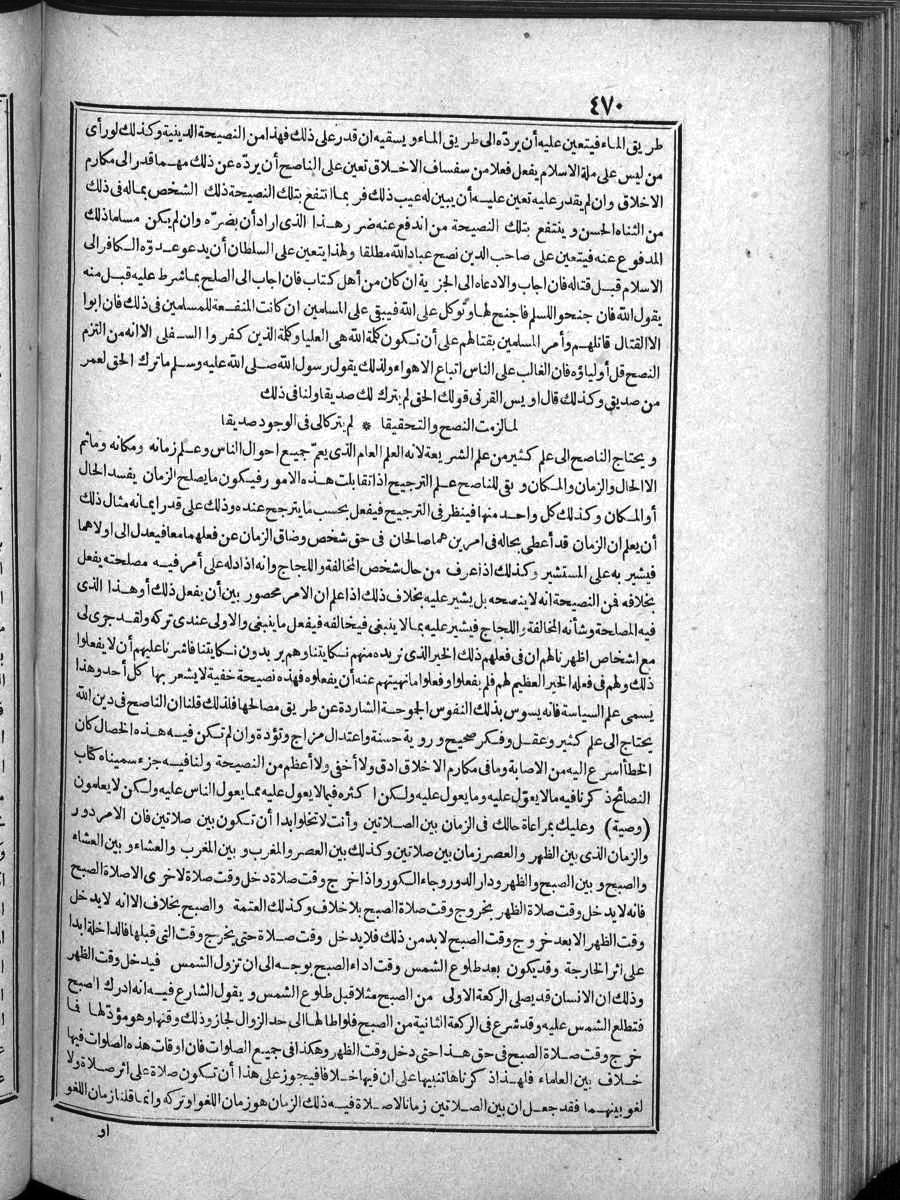 ٤٧٠
طريق الماء فيتعين عليه أن يردّه الى طريق الماء ويسقيه ان قدر على ذلك فهذا من النصيحة الدينية وكذلك لو رأى
من ليس على ملة الاسلام يفعل فعلا من سفساف الاخلاق تعين على الناصح أن يردّه عن ذلك مهما قدر الى مكارم
الاخلاق وان لم يقدر عليه تعين عليه أن يبين له عيب ذلك فربما انتفع بتلك النصيحة ذلك الشخص بماله فى ذلك
من الثناء الحسن وينتفع بتلك النصيحة من اندفع عنه ضرر هذا الذى اراد أن يضرّه وان لم يكن مسلما ذلك
المدفوع عنه فيتعين على صاحب الدين نصح عباد الله مطلقا ولهذا يتعين على السلطان أن يدعو عدوّه الكافر الى
الاسلام قبل قتاله فان اجاب والا دعاه الى الجزية ان كان من أهل كتاب فان اجاب الى الصلح بما شرط عليه قبل منه
يقول الله فان جنحوا للسلم فاجنح لها وتوكل على الله فيبقى على المسلمين ان كانت المنفعة للمسلمين فى ذلك فان ابوا
الا القتال قاتلهم وأمر المسلمين بقتالهم على أن تكون كلمة الله هى العليا وكلمة الذين كفروا السفلى الا انه من التزم
النصح قل أولياؤه فان الغالب على الناس اتباع الاهواء ولذلك يقول رسول الله صلى الله عليه وسلم ما ترك الحق لعمر
من صديق وكذلك قال اويس القرنى قولك الحق لم يترك لك صديقا ولنا فى ذلك
لما لزمت النصح والتحقيقا * لم يتركا لى فى الوجود صديقا
ويحتاج الناصح الى علم كثير من علم الشريعة لانه العلم العام الذى يعمّ جميع احوال الناس وعلم زمانه ومكانه وما ثم
الا الحال والزمان والمكان وبقى للناصح علم الترجيح اذا تقابلت هذه الامور فيكون ما يصلح الزمان يفسد الحال
أو المكان وكذلك كل واحد منها فينظر فى الترجيح فيفعل بحسب ما يترجح عنده وذلك على قدر ايمانه مثال ذلك
أن يعلم ان الزمان قد أعطى بحاله فى امرين هما صالحان فى حق شخص وضاق الزمان عن فعلهما معا فيعدل الى اولاهما
فيشير به على المستشير وكذلك اذا عرف من حال شخص المخالفة واللجاج وانه اذا دله على أمر فيه مصلحته يفعل
بخلافه فن النصيحة انه لا ينصحه بل يشير عليه بخلاف ذلك اذا علم ان الامر محصور بين أن يفعل ذلك أو هذا الذى
فيه المصلحة وشأنه المخالفة واللجاج فيشير عليه بما لا ينبغى فيخالفه فيفعل ما ينبغى والاولى عندى تركه ولقد جرى لى
مع اشخاص اظهرنا لهم ان فى فعلهم ذلك الخير الذى نريده منهم نكايتنا وهم يريدون نكايتنا فاشرنا عليهم أن لا يفعلوا
ذلك ولهم فى فعله الخير العظيم لهم فلم يفعلوا وفعلوا ما نهيتهم عنه أن يفعلوه فهذه نصيحة خفية لا يشعر بها كل أحد وهذا
يسمى علم السياسة فانه يسوس بذلك النفوس الجموحة الشاردة عن طريق مصالحها فلذلك قلنا ان الناصح فى دين الله
يحتاج الى علم كثير وعقل وفكر صحيح وروية حسنة واعتدال مزاج وتؤدة وان لم تكن فيه هذه الخصال كان
الخطأ اسرع اليه من الاصابة وما فى مكارم الاخلاق ادق ولا أخفى ولا أعظم من النصيحة ولنا فيه جزء سميناه كتاب
النصائح ذكرنا فيه ما لا يعوّل عليه وما يعول عليه ولكن اكثره فيما لا يعول عليه مما يعول الناس عليه ولكن لا يعلمون
(وصية) وعليك بمراعاة حالك فى الزمان بين الصلاتين وأنت لا تخلو ابدا أن تكون بين صلاتين فان الامر دور
والزمان الذى بين الظهر والعصر زمان بين صلاتين وكذلك بين العصر والمغرب وبين المغرب والعشاء وبين العشاء
والصبح وبين الصبح والظهر ودار الدور وجاء الكور واذا خرج وقت صلاة دخل وقت صلاة لاخرى الا صلاة الصبح
فانه لا يدخل وقت صلاة الظهر بخروج وقت صلاة الصبح بلا خلاف وكذلك العتمة والصبح بخلاف الا انه لا يدخل
وقت الظهر الا بعد خروج وقت الصبح لا بد من ذلك فلا يدخل وقت صلاة حتى يخرج وقت التى قبلها فالداخلة ابدا
على اثر الخارجة وقد يكون بعد طلوع الشمس وقت اداء الصبح بوجه الى ان تزول الشمس فيدخل وقت الظهر
وذلك ان الانسان قد يصلى الركعة الاولى من الصبح مثلا قبل طلوع الشمس ويقول الشارع فيه انه ادرك الصبح
فتطلع الشمس عليه وقد شرع فى الركعة الثانية من الصبح فلو اطالها الى حد الزوال لجاز وذلك وقتها وهو مؤدّ لها فما
خرج وقت صلاة الصبح فى حق هذا حتى دخل وقت الظهر وهكذا فى جميع الصلوات فان اوقات هذه الصلوات فيها
خلاف بين العلماء فلهذا ذكرناها تنبيها على ان فيها خلافا فيجوز على هذا أن تكون صلاة على اثر صلاة ولا
لغو بينهما فقد جعل ان بين الصلاتين زمانا لا صلاة فيه ذلك الزمان هو زمان اللغو او تركه وانما قلنا زمان اللغو
او